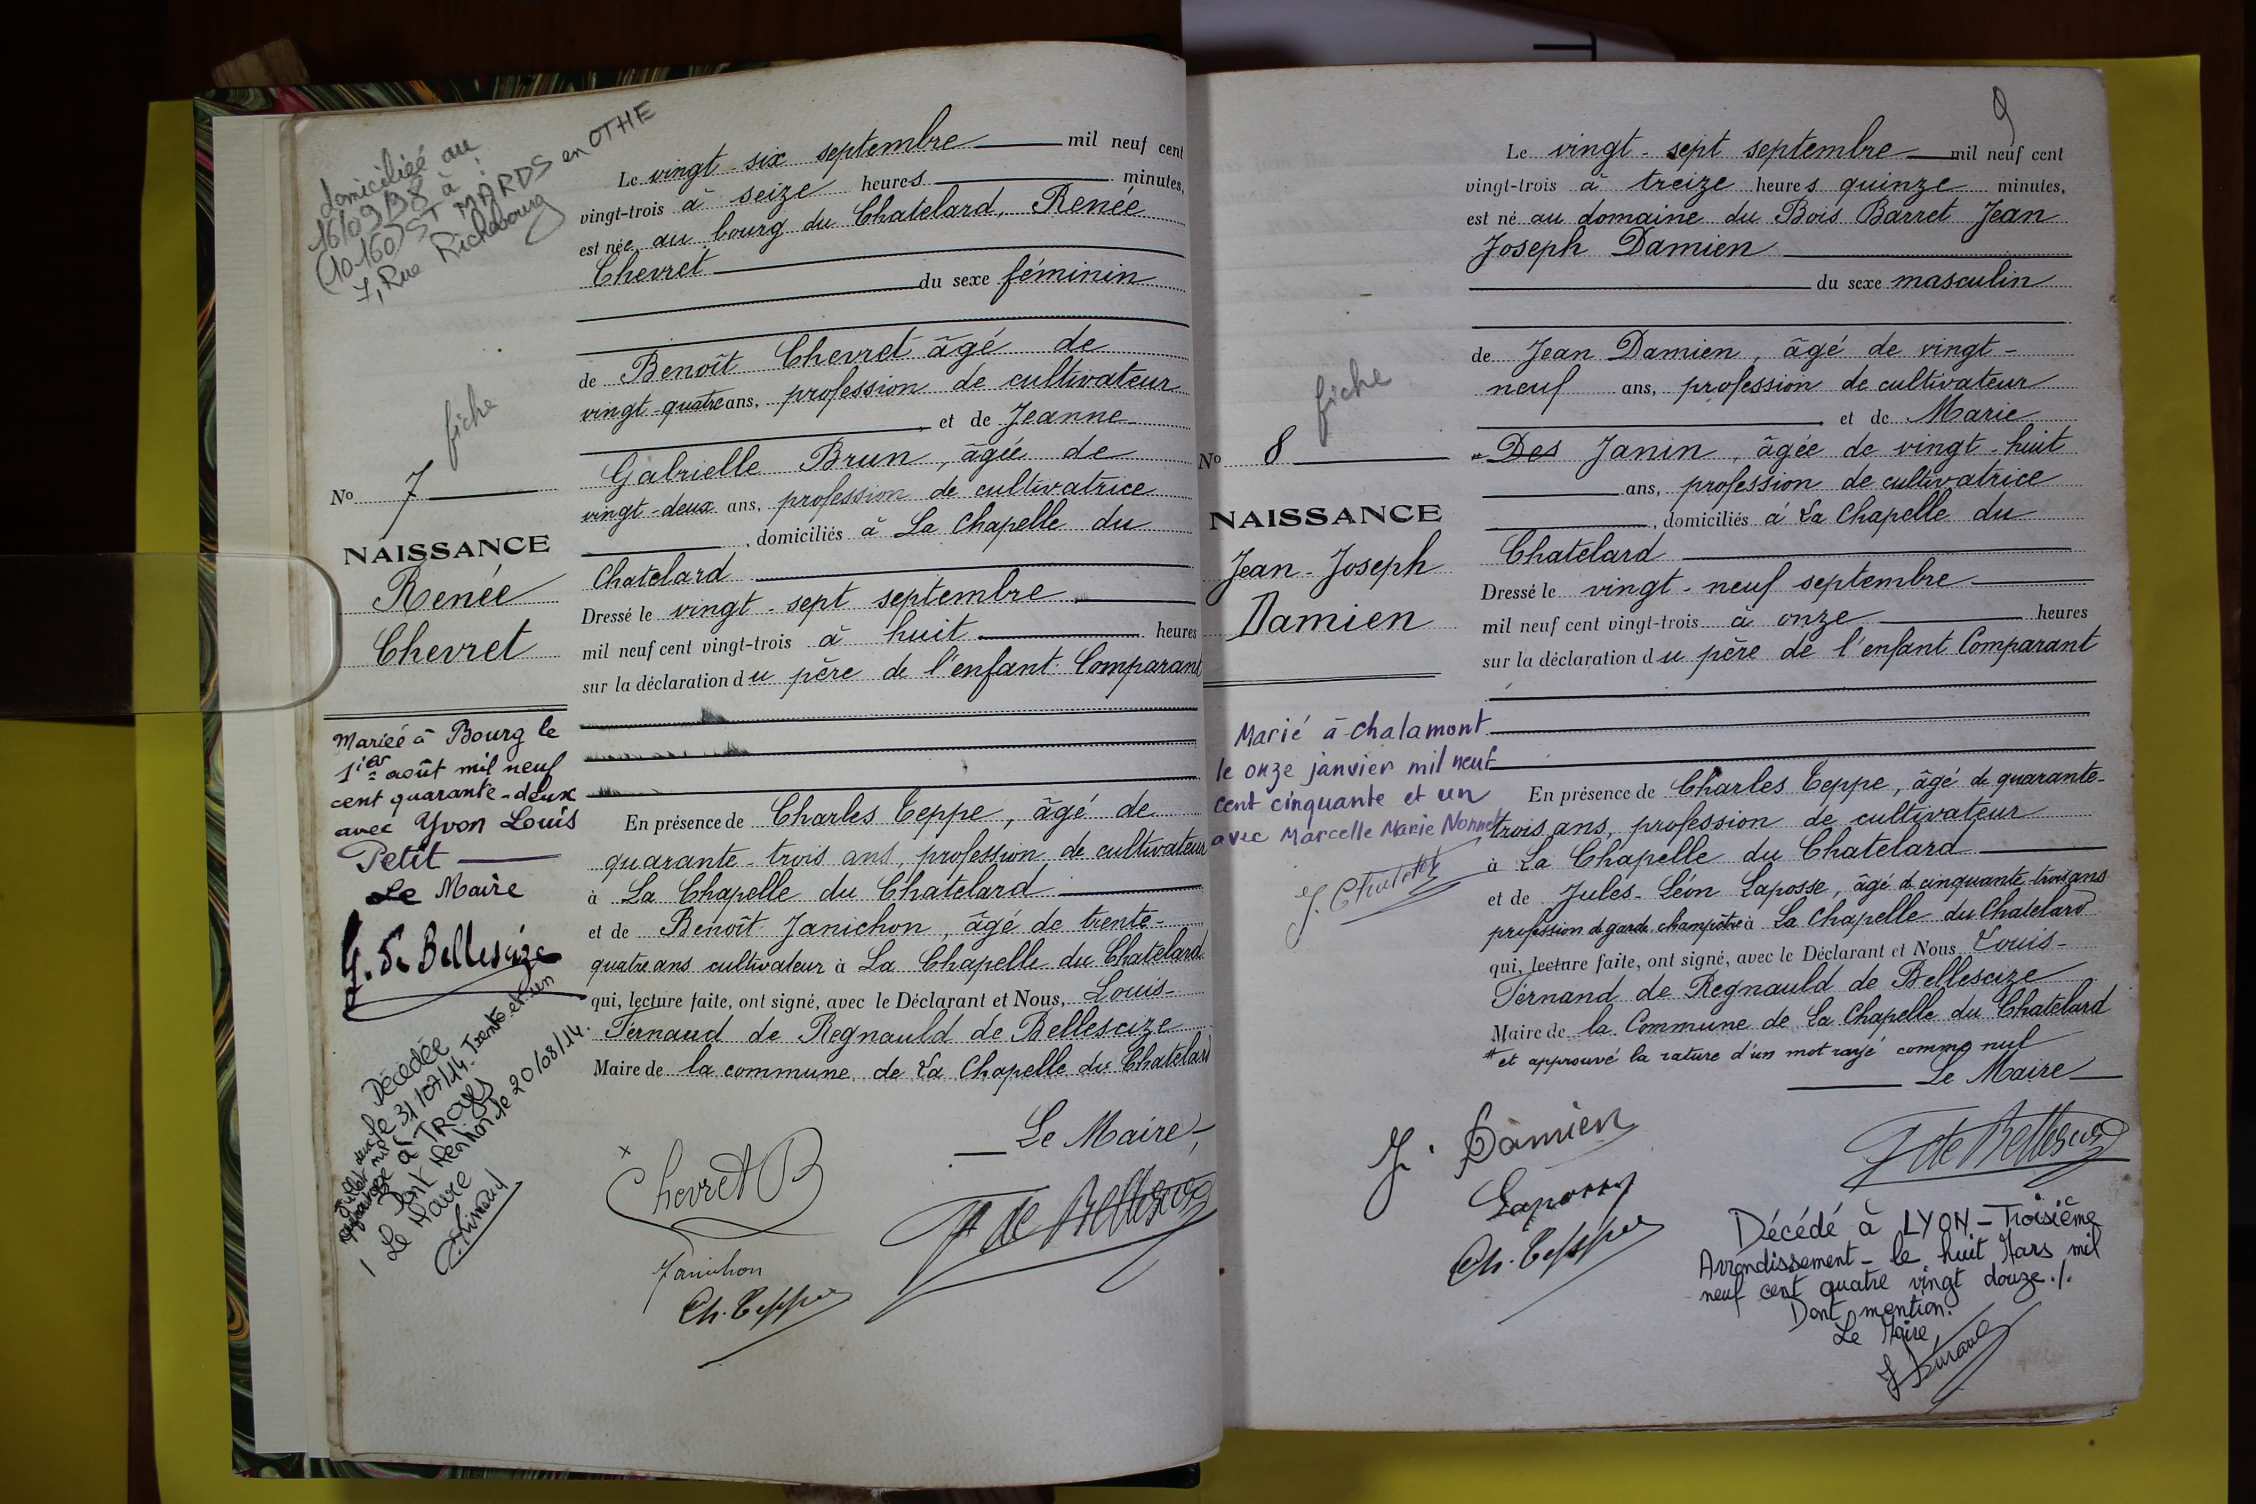 domiciliée au
16/09/38 à :
(10160) ST MARDS en OTHE
7, Rue Richebourg
fiche
No 7
NAISSANCE
Renée
Chevret
Mariée à Bourg le
1ier août mil neuf
cent quarante-deux
avec Yvon Louis
Petit
Le Maire
Décédée
le 31/07/14. Trente et un
juillet deux mil quatorze à TROYES
Dont Mention le 20/08/14.
Le Maire
Le vingt-six septembre mil neuf cent
vingt-trois à seize heures minutes,
est née, au bourg du Chatelard, Renée
Chevret
du sexe féminin
de Benoît Chevret âgé de
vingt-quatre ans, profession de cultivateur
et de Jeanne
Gabrielle Brun, âgée de
vingt-deux ans, profession de cultivatrice
, domiciliés à La Chapelle du
Chatelard
Dressé le vingt-sept septembre
mil neuf cent vingt-trois à huit heures
sur la déclaration du père de l'enfant Comparant
En présence de Charles Teppe, âgé de
quarante-trois ans, profession de cultivateur
à La Chapelle du Chatelard
et de Benoît Janichon, âgé de trente-
quatre ans cultivateur à La Chapelle du Chatelard
qui, lecture faite, ont signé, avec le Déclarant et Nous, Louis-
Fernand de Regnauld de Bellescize
Maire de la commune de La Chapelle du Chatelard
Le Maire,
Chevret B
F de Bellescize
Janichon
Ch. Teppe
9
fiche
No 8
NAISSANCE
Jean-Joseph
Damien
Marié à Chalamont
le onze janvier mil neuf
cent cinquante et un
avec Marcelle Marie
Le vingt-sept septembre mil neuf cent
vingt-trois à treize heures quinze minutes,
est né au domaine du Bois Barret Jean
Joseph Damien
du sexe masculin
de Jean Damien, âgé de vingt-
neuf ans, profession de cultivateur
et de Marie
* Des Janin, âgée de vingt-huit
ans, profession de cultivatrice
, domiciliés à La Chapelle du
Chatelard
Dressé le vingt-neuf septembre
mil neuf cent vingt-trois à onze heures
sur la déclaration du père de l'enfant Comparant
En présence de Charles Teppe, âgé de quarante-
trois ans, profession de cultivateur
à La Chapelle du Chatelard
et de Jules-Léon Laposse, âgé de cinquante-trois ans
profession de garde champêtre à La Chapelle du Chatelard
qui, lecture faite, ont signé, avec le Déclarant et Nous Louis-
Fernand de Regnauld de Bellescize
Maire de la Commune de La Chapelle du Chatelard
* et approuvé la rature d'un mot rayé comme nul
Le Maire
J. Damien
F de Bellescize
Laposse
Ch. Teppe
Décédé à LYON - Troisième
Arrondissement - le huit Mars mil
neuf cent quatre vingt douze./.
Dont mention.
Le Maire,